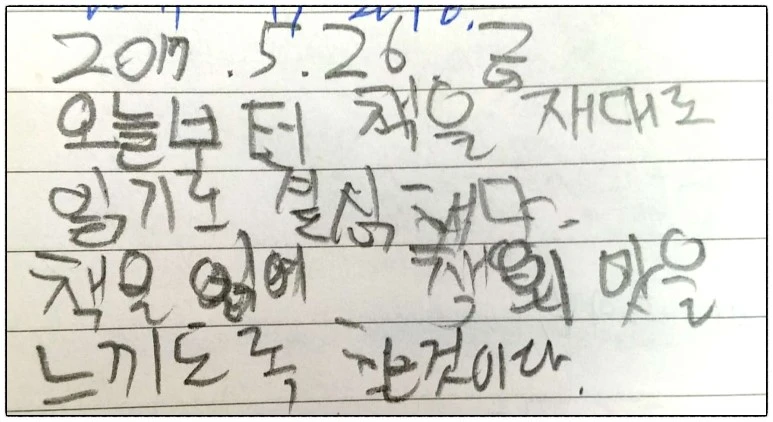 2017.5.26 금
오늘부터 책을 재대로
읽기로 결심했다.
책을 읽어 책의 맛을
느끼도록 할것이다.